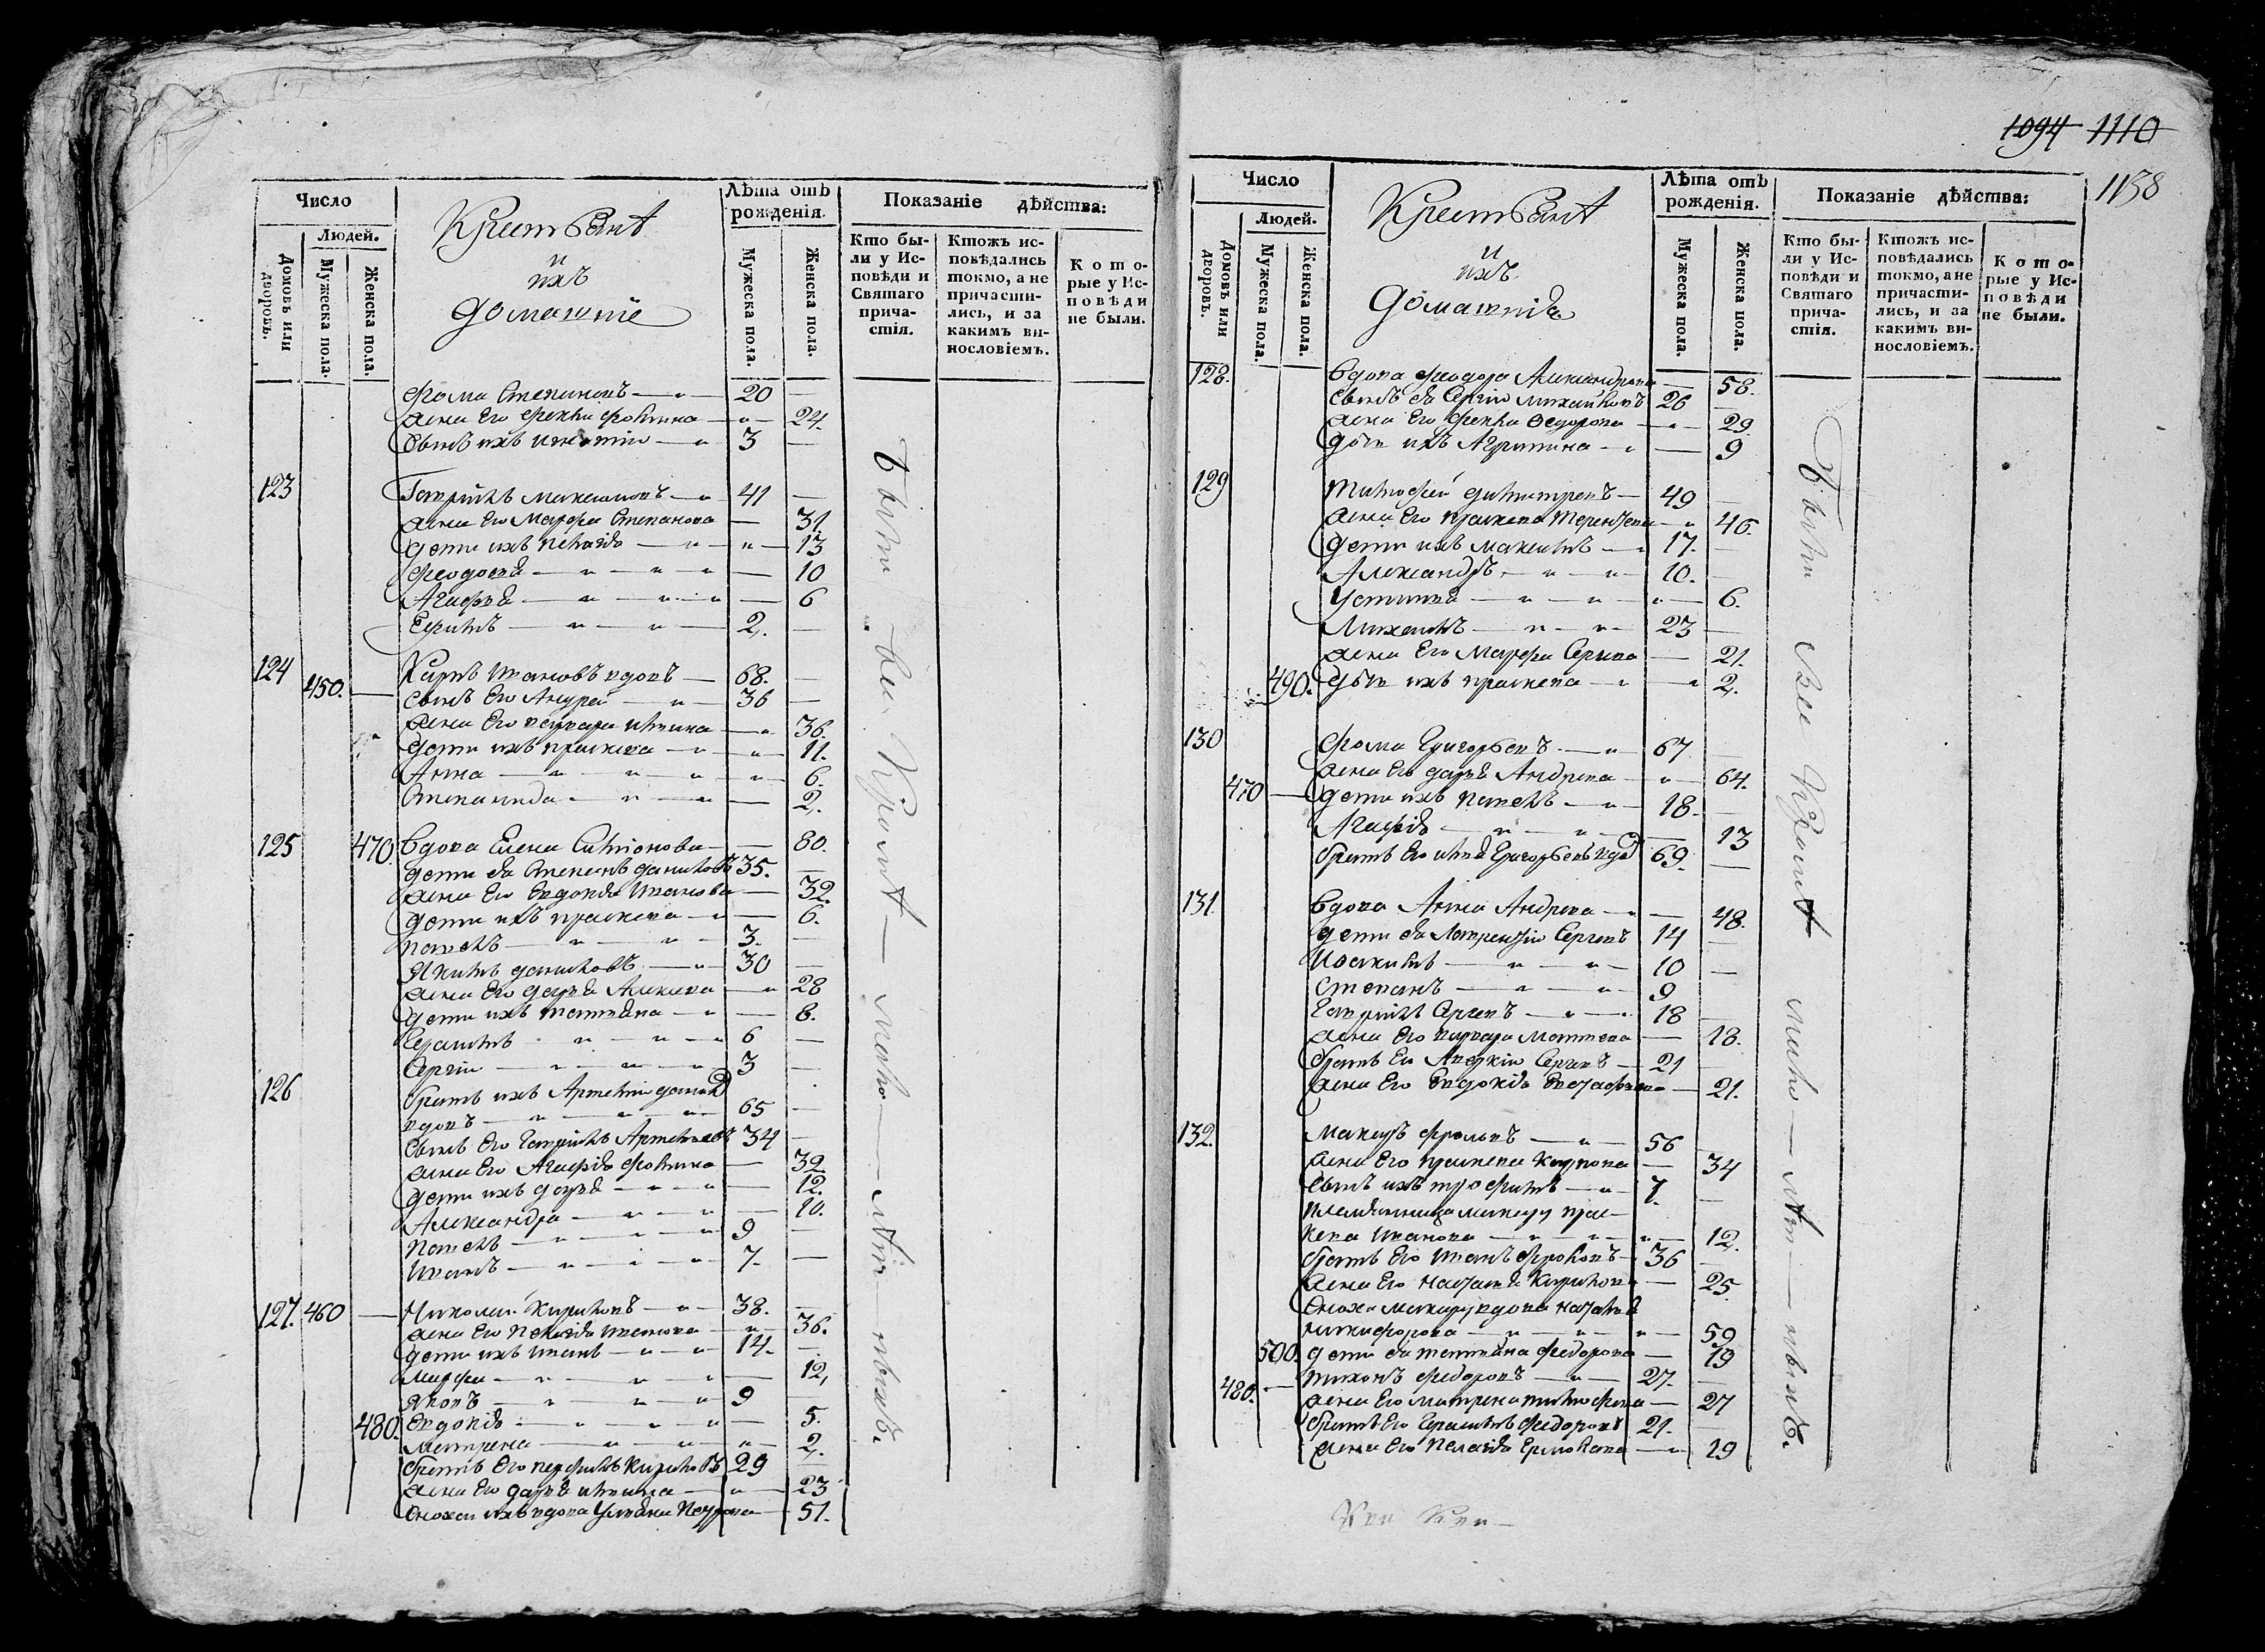 Число
Людей.
Домовъ или дворовъ.
Мужеска пола.
Женска пола.
Крестьянѣ
и
ихъ
домашніе
Лѣта отъ рожденія.
Мужеска пола.
Женска пола.
Показаніе дѣйства:
Кто бы-
ли у Ис-
повѣди и
Святаго
прича-
стія.
Ктожъ ис-
повѣдались
токмо, а не
причасти-
лись, и за
какимъ ви-
нословіемъ.
Кото-
рые у Ис-
повѣди
не были.
Фома Степановъ 20
жена его Фекла 24
сынъ ихъ 3
123 Гаврiилъ 41
жена его Марфа Степанова 31
дети ихъ Пелагія 13
Феодосья 10
Агафья 6
Ефимъ 2.
124 Карпъ Ивановъ вдовъ 68.
450. сынъ его Андрей 36
жена его Варвара 36.
дети ихъ Праскева 11.
Анна 6.
Степанида 2.
125 470. вдова Елена Симионова 80.
дети ея Степанъ Даниловъ 35.
жена его Евдокія Иванова 32.
дети ихъ Праскева 6.
Павелъ 3.
Якимъ Даниловъ 30
жена его Дарья 28
дети ихъ Татьяна 8.
Герасимъ 6
Сергій 3
126 братъ ихъ Артемій
вдовъ 65
сынъ его Гаврiилъ 34
жена его Агафія 32.
дети ихъ Дарья 12.
Александра 10.
Павелъ 9
Иванъ 7.
127. 460 Николай Кириловъ 38.
жена его Пелагія Иванова 36.
дети ихъ Иванъ 14.
Марфа 12,
Яковъ 9
480. Евдокія 5.
Матрена 2.
братъ его Перфилъ Кириловъ 29
жена его Дарья 23
сноха ихъ вдова Ульяна Петрова 51.
Были
1094 1110
1158
Число
Людей.
Домовъ или дворовъ.
Мужеска пола.
Женска пола.
Крестьянѣ
и
ихъ
домашнія
Лѣта отъ рожденія.
Мужеска пола.
Женска пола.
Показаніе дѣйства:
Кто бы-
ли у Ис-
повѣди и
Святаго
прича-
стія.
Ктожъ ис-
повѣдались
токмо, а не
причасти-
лись, и за
какимъ ви-
нословіемъ.
Кото-
рые у Ис-
повѣди
не были.
128. вдова Феодора Александрова 58.
сынъ ея Сергій Михайловъ 26
жена его Фекла Федорова 29
дочь ихъ Агрипина 9
129 Тимофей Димитревъ 49
жена его Праскева Терентева 46.
дети ихъ Максимъ 17.
Александръ 10.
Устинья 6.
Михаилъ 23
жена его Марфа 21.
490. дочь ихъ Праскева 2.
130 Фома Григорьевъ 67
жена его Дарья Андрева 64.
470 дети ихъ Павелъ 18.
Агафія 13
братъ его Илья Григорьевъ 69.
131. вдова Анна Андрева 48.
дети ея Лаврентій Сергевъ 14
Иоакимъ 10
Степанъ 9
Гаврiилъ Сергевъ 18
жена его Варвара Матвева 18.
братъ его Аверкій Сергевъ 21
жена его Евдокія 21.
132. Макаръ Фроловъ 56
жена его Праскева Карпова 34
сынъ ихъ Трофимъ 7.
племянница Макару Прас-
кева Иванова 12.
братъ его Иванъ Фроловъ 36
жена его Наталья Кирилова 25
сноха Макару вдова Наталья
Никифорова 59
500. дети ея Татьяна Федорова 19
480. Тихонъ Федоровъ 27.
жена его Матрена Тимофева 27
братъ его Герасимъ Федоровъ 21.
жена его Пелагія Ермолаева 19
Были все